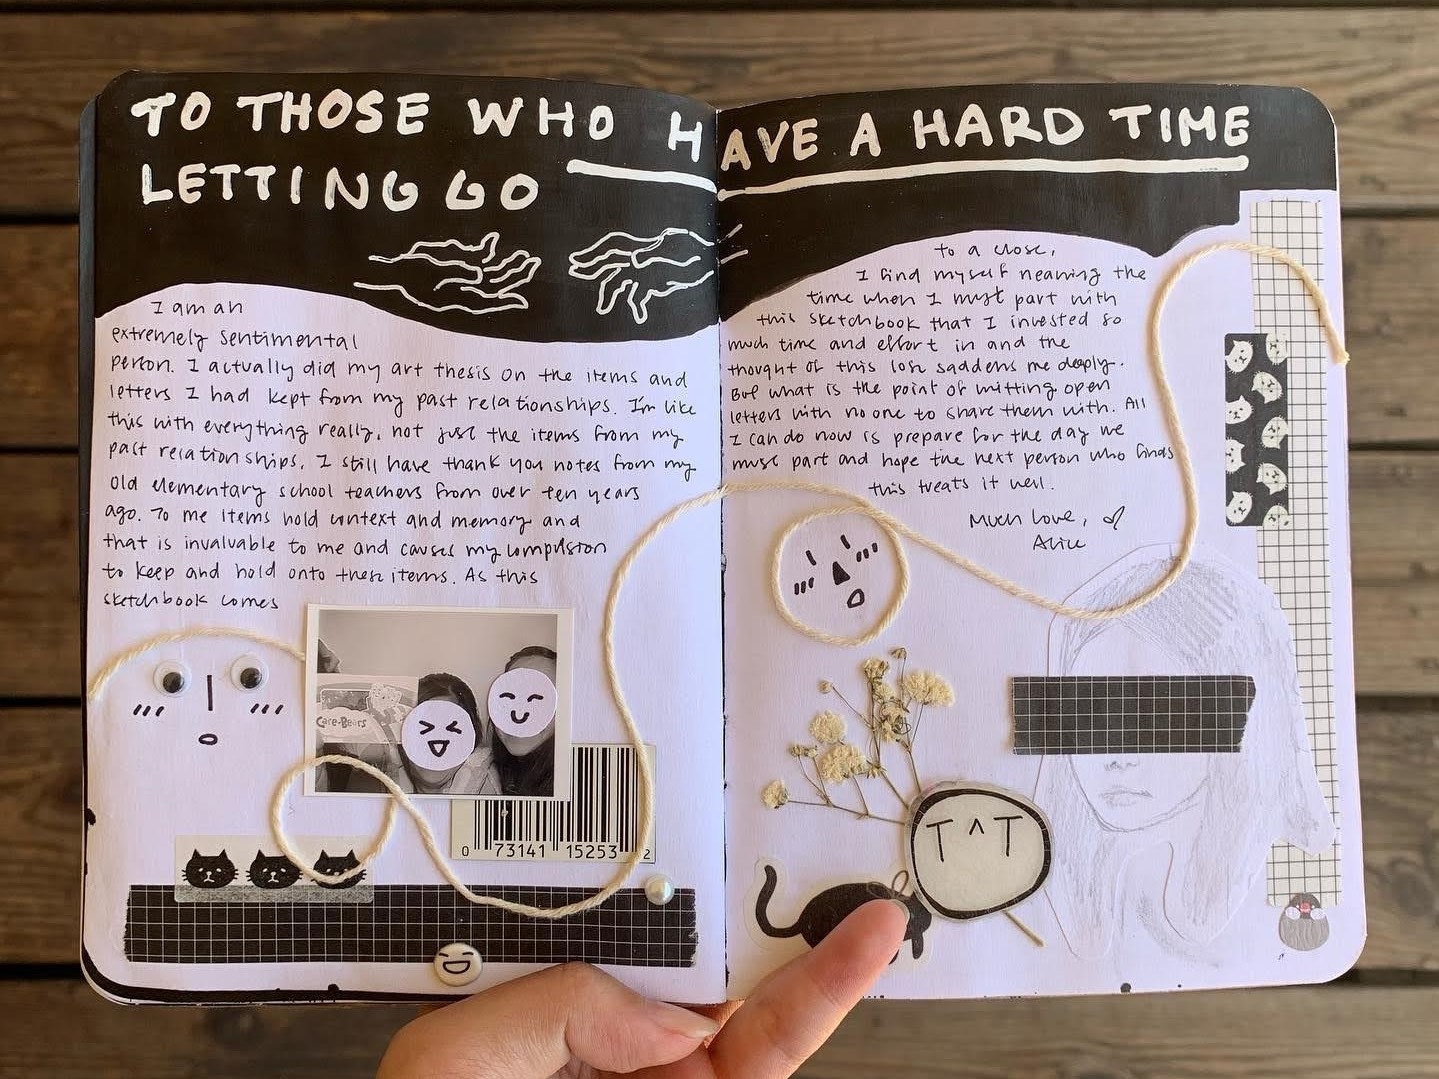 TO THOSE WHO HAVE A HARD TIME
LETTING GO
I am an
extremely sentimental
person. I actually did my art thesis on the items and
letters I had kept from my past relationships. I'm like
this with everything really, not just the items from my
past relationships. I still have thank you notes from my
old elementary school teachers from over ten years
ago. To me items hold context and memory and
that is invaluable to me and causes my compulsion
to keep and hold onto these items. As this
sketchbook comes
to a close,
I find myself nearing the
time when I must part with
this sketchbook that I invested so
much time and effort in and the
thought of this loss saddens me deeply.
But what is the point of writting open
letters with no one to share them with. All
I can do now is prepare for the day we
must part and hope the next person who finds
this treats it well.
Much love,
Alice
Care-Bears
0 73141 15253 2
T^T